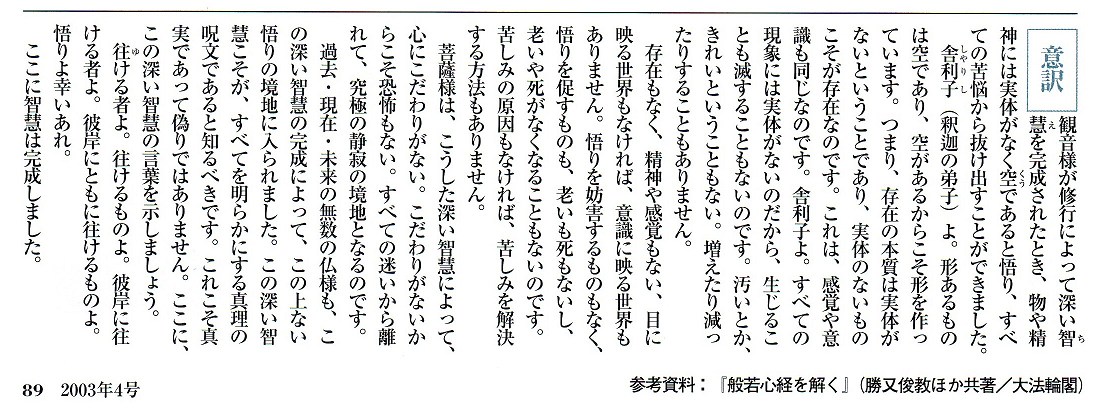 意訳
観音様が修行によって深い智
慧を完成されたとき、物や精
神には実体がなく空であると悟り、すべ
ての苦悩から抜け出すことができました。
舎利子（釈迦の弟子）よ。形あるもの
は空であり、空があるからこそ形を作っ
ています。つまり、存在の本質は実体が
ないということであり、実体のないもの
こそが存在なのです。これは、感覚や意
識も同じなのです。舎利子よ。すべての
現象には実体がないのだから、生じるこ
とも滅することもないのです。汚いとか、
きれいということもない。増えたり減っ
たりすることもありません。
存在もなく、精神や感覚もない、目に
映る世界もなければ、意識に映る世界も
ありません。悟りを妨害するものもなく、
悟りを促すものも、老いも死もないし、
老いや死がなくなることもないのです。
苦しみの原因もなければ、苦しみを解決
する方法もありません。
菩薩様は、こうした深い智慧によって、
心にこだわりがない。こだわりがないか
らこそ恐怖もない。すべての迷いから離
れて、究極の静寂の境地となるのです。
過去・現在・未来の無数の仏様も、こ
の深い智慧の完成によって、この上ない
悟りの境地に入られました。この深い智
慧こそが、すべてを明らかにする真理の
呪文であると知るべきです。これこそ真
実であって偽りではありません。ここに、
この深い智慧の言葉を示しましょう。
往ける者よ。往けるものよ。彼岸に往
ける者よ。彼岸にともに往けるものよ。
悟りよ幸いあれ。
ここに智慧は完成しました。
参考資料：『般若心経を解く』（勝又俊教ほか共著／大法輪閣）
89 2003年4号